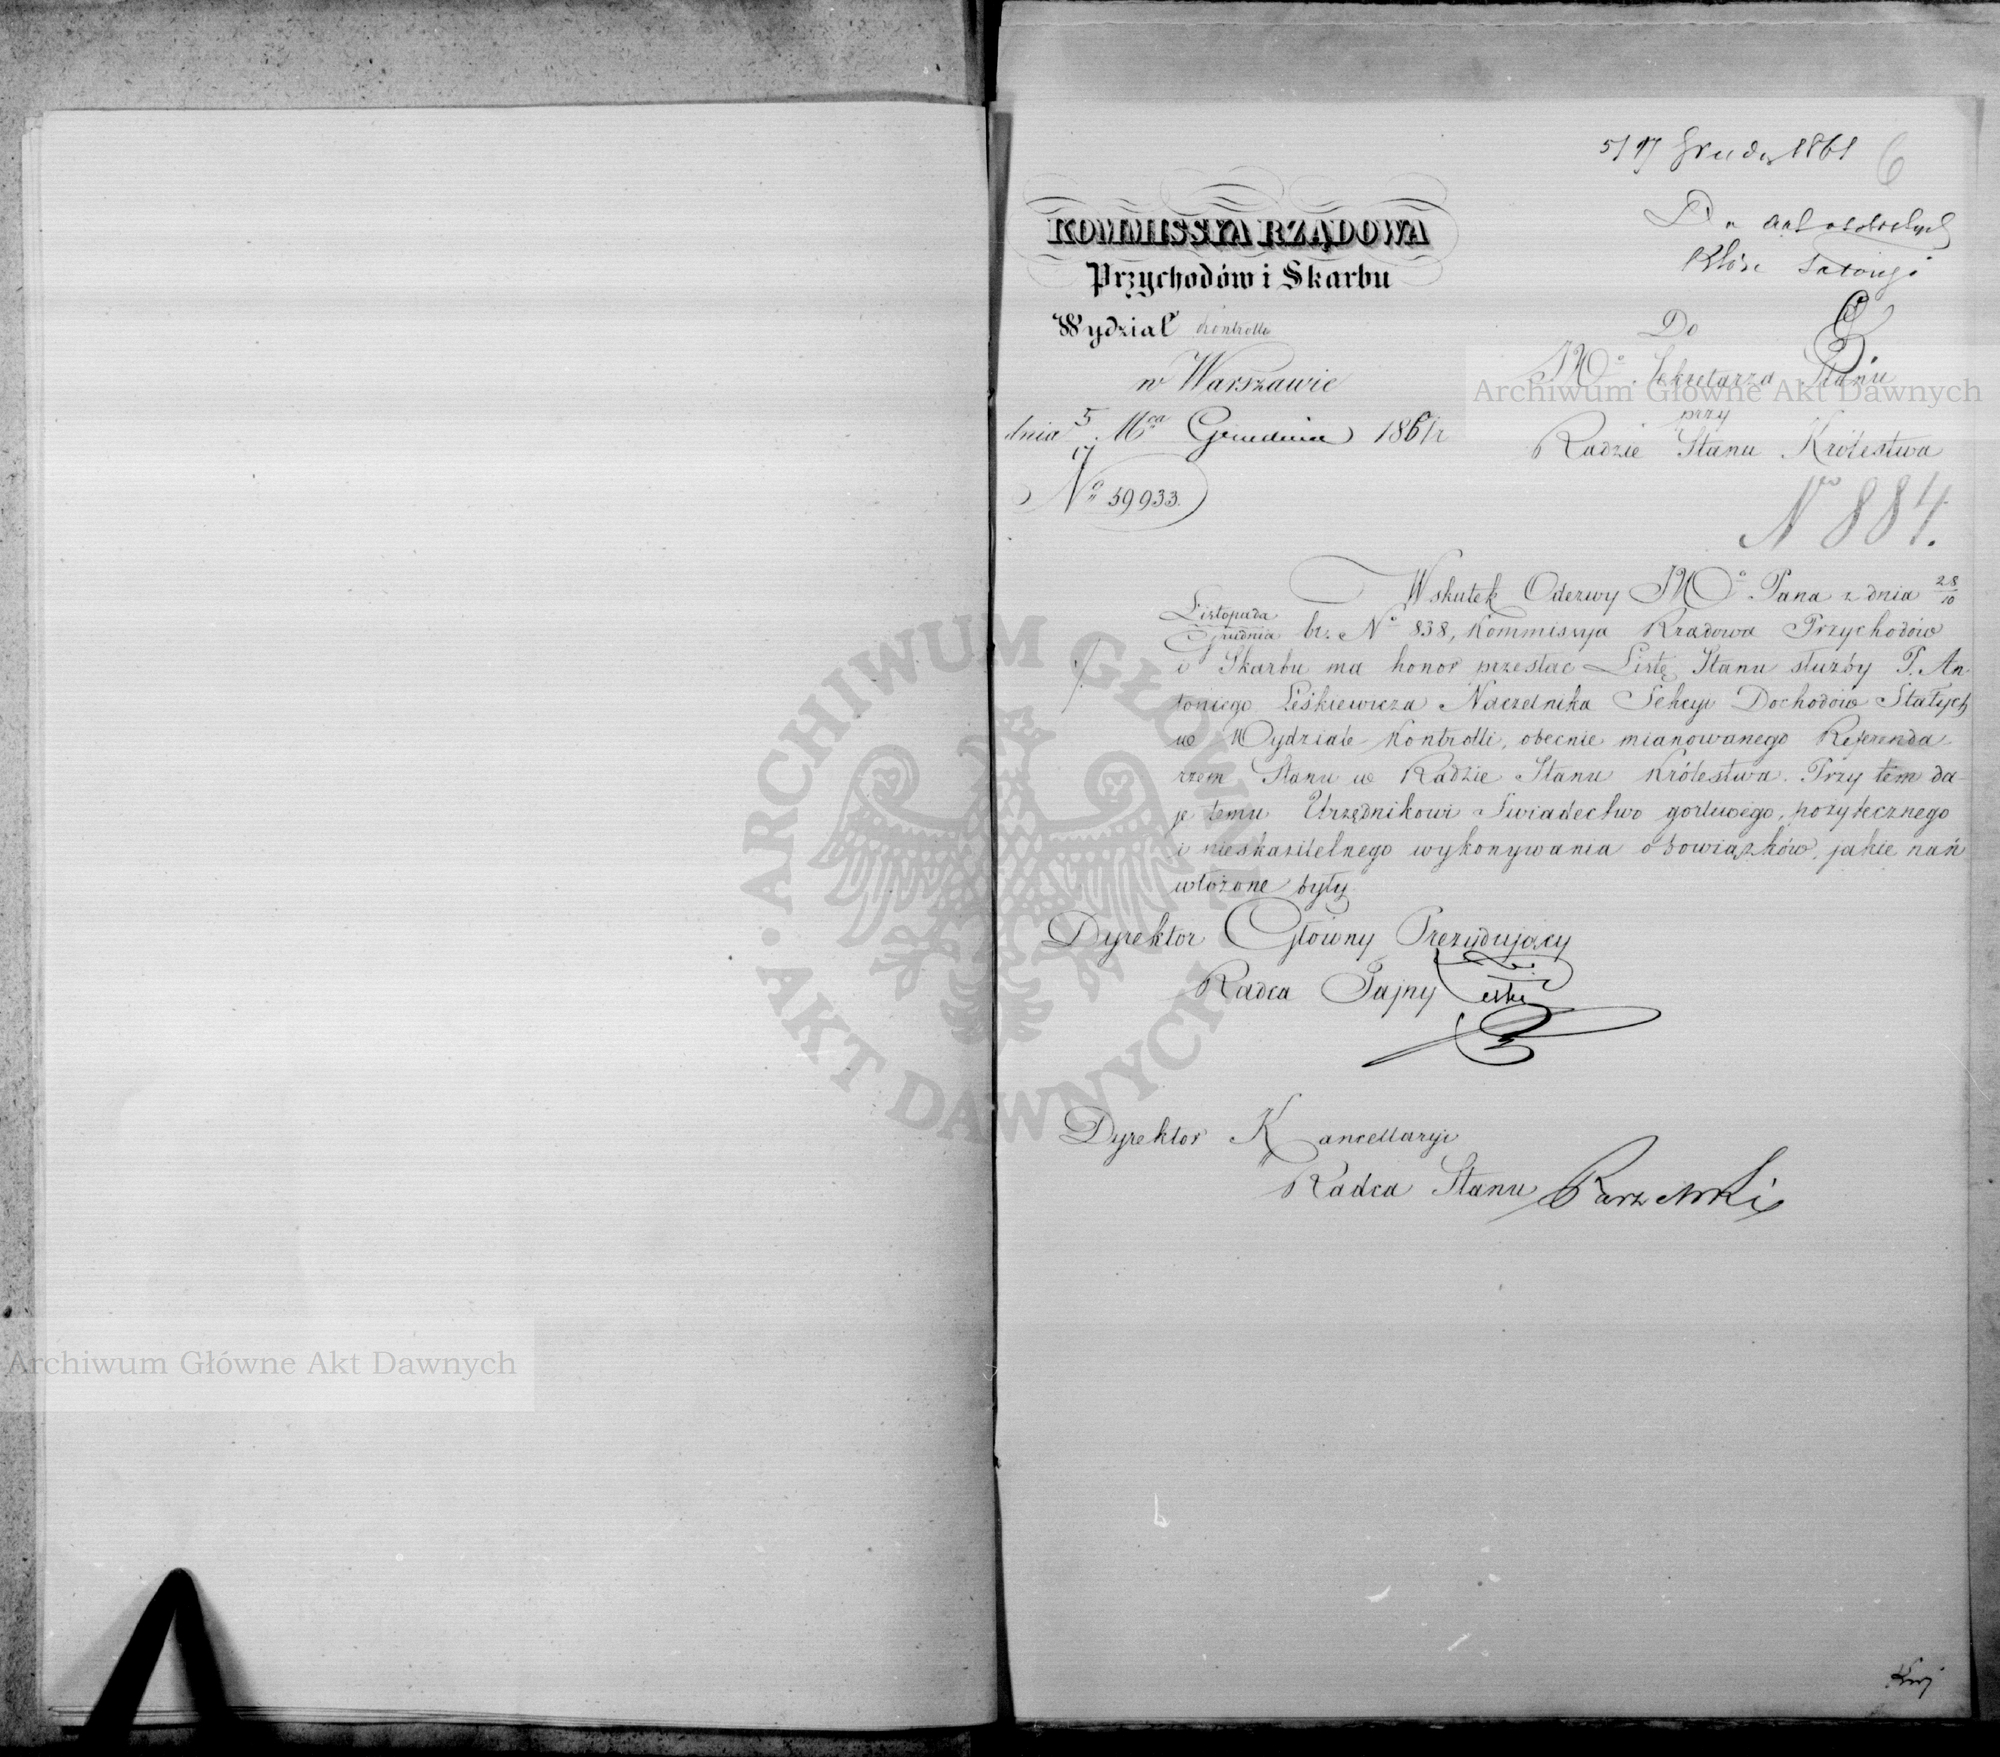 5/17 Grud. 1861
6
Do akt osobnych
KOMMISSYA RZĄDOWA
Przychodów i Skarbu
Wydział Kontrolli
w Warszawie
dnia 5/17 Mca Grudnia 1861 r
No 59933.
Do
JWo Sekretarza Stanu
przy
Radzie Stanu Królestwa
No 884.
Wskutek Odezwy JWo Pana z dnia 28/10
Listopada/Grudnia br. No 838, Kommissyja Rządowa Przychodów
i Skarbu ma honor przesłać Listę Stanu służby P. An-
toniego Leśkiewicza Naczelnika Sekcyi Dochodów Stałych
w Wydziale Kontrolli, obecnie mianowanego Referenda-
rzem Stanu w Radzie Stanu Królestwa. Przy tem da-
je temu Urzędnikowi Świadectwo gorliwego, pożytecznego
i nieskazitelnego wykonywania obowiązków, jakie nań
włożone były
Dyrektor Główny Prezydujący
Radca Tajny
Dyrektor Kancellaryi
Radca Stanu
ARCHIWUM GŁÓWNE AKT DAWNYCH
Archiwum Główne Akt Dawnych
Archiwum Główne Akt Dawnych